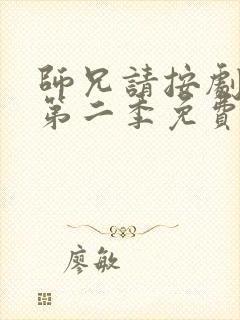 師兄請按劇
第二季免費
廖敏